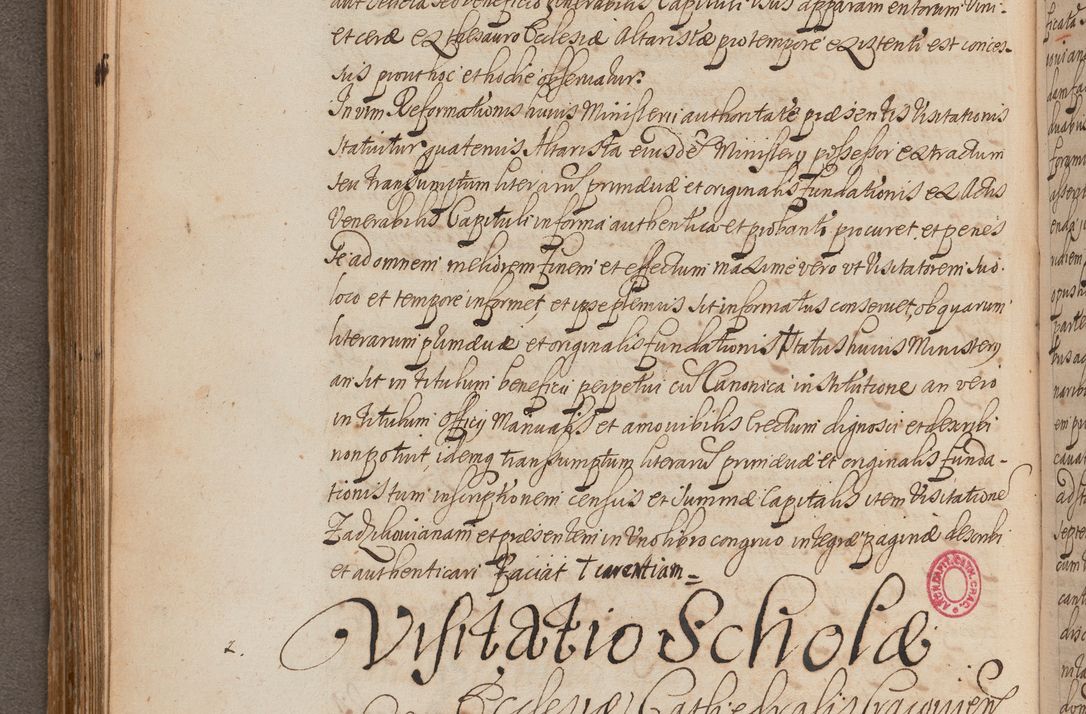 et ceræ ex thesauro Ecclesiæ Altaristæ pro tempore existenti est conces-
sus prout hoc et hodie observatur.
In vim Reformationis huius Ministerii authoritate præsentis Visitationis
statuitur quatenus Altarista eiusdẽ Ministerij possessor extractum
seu transumptum literarũ primævæ et originalis fundationis ex Actis
Venerabilis Capituli in forma authentica et probanti procuret, et penes
se ad omnem meliorem finem et effectum maxime vero ut Visitatorem suo
loco et tempore informet, et ipsemet sit informatus conservet, ob quarum
literarum primævæ et originalis fundationis statushuius Ministerij
an sit in titulum beneficii perpetui cũ Canonica institutione, an vero
in titulum officij Manualis et amovibilis Erectum dignosci et describi
non potuit, idemq transsumptum literarũ primævæ et originalis funda-
tionis tum inscriptionem census et summæ Capitalis item Visitatione
Zadzikovianam et præsentem in Vno libro congruo integræ paginæ describi
et authenticari faciat † carentiam =
2. Visitatio Scholæ
Ecclesiæ Cathedralis Cracovien